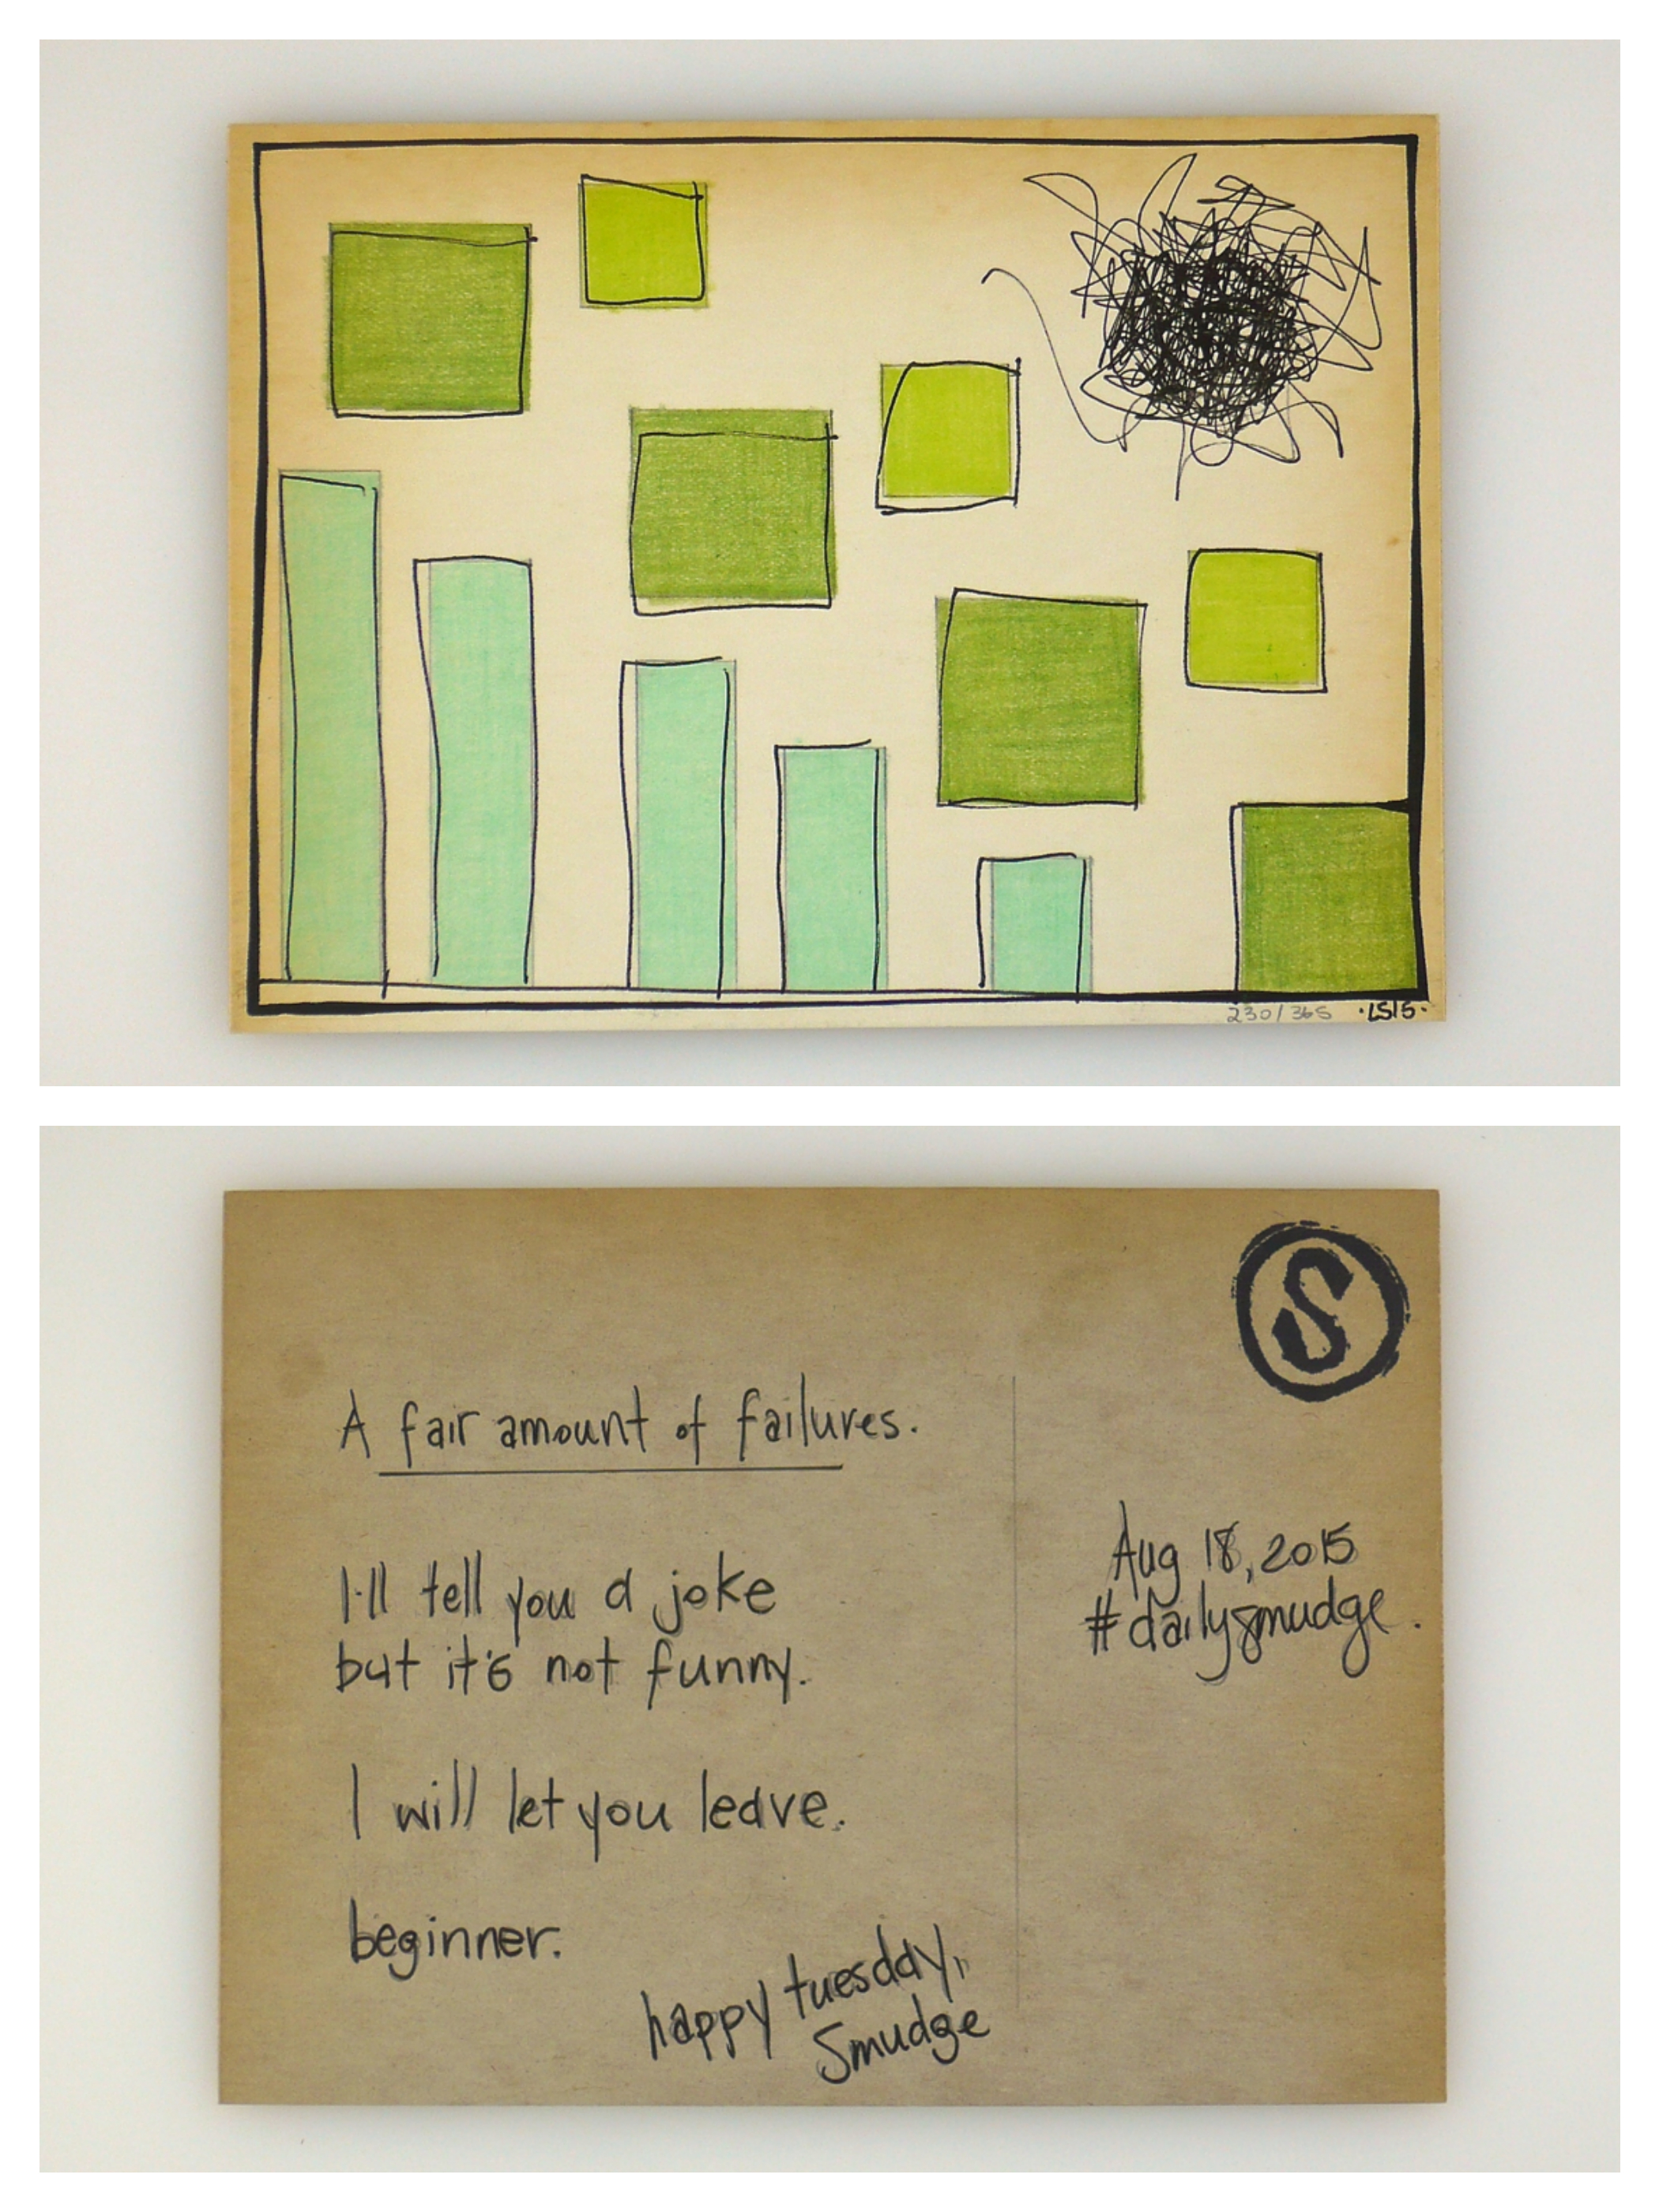 230/365 ·LS15·
S
A fair amount of failures.
I'll tell you a joke
but it's not funny.
I will let you leave.
beginner.
happy tuesday,
Smudge
Aug 18, 2015
#dailysmudge.